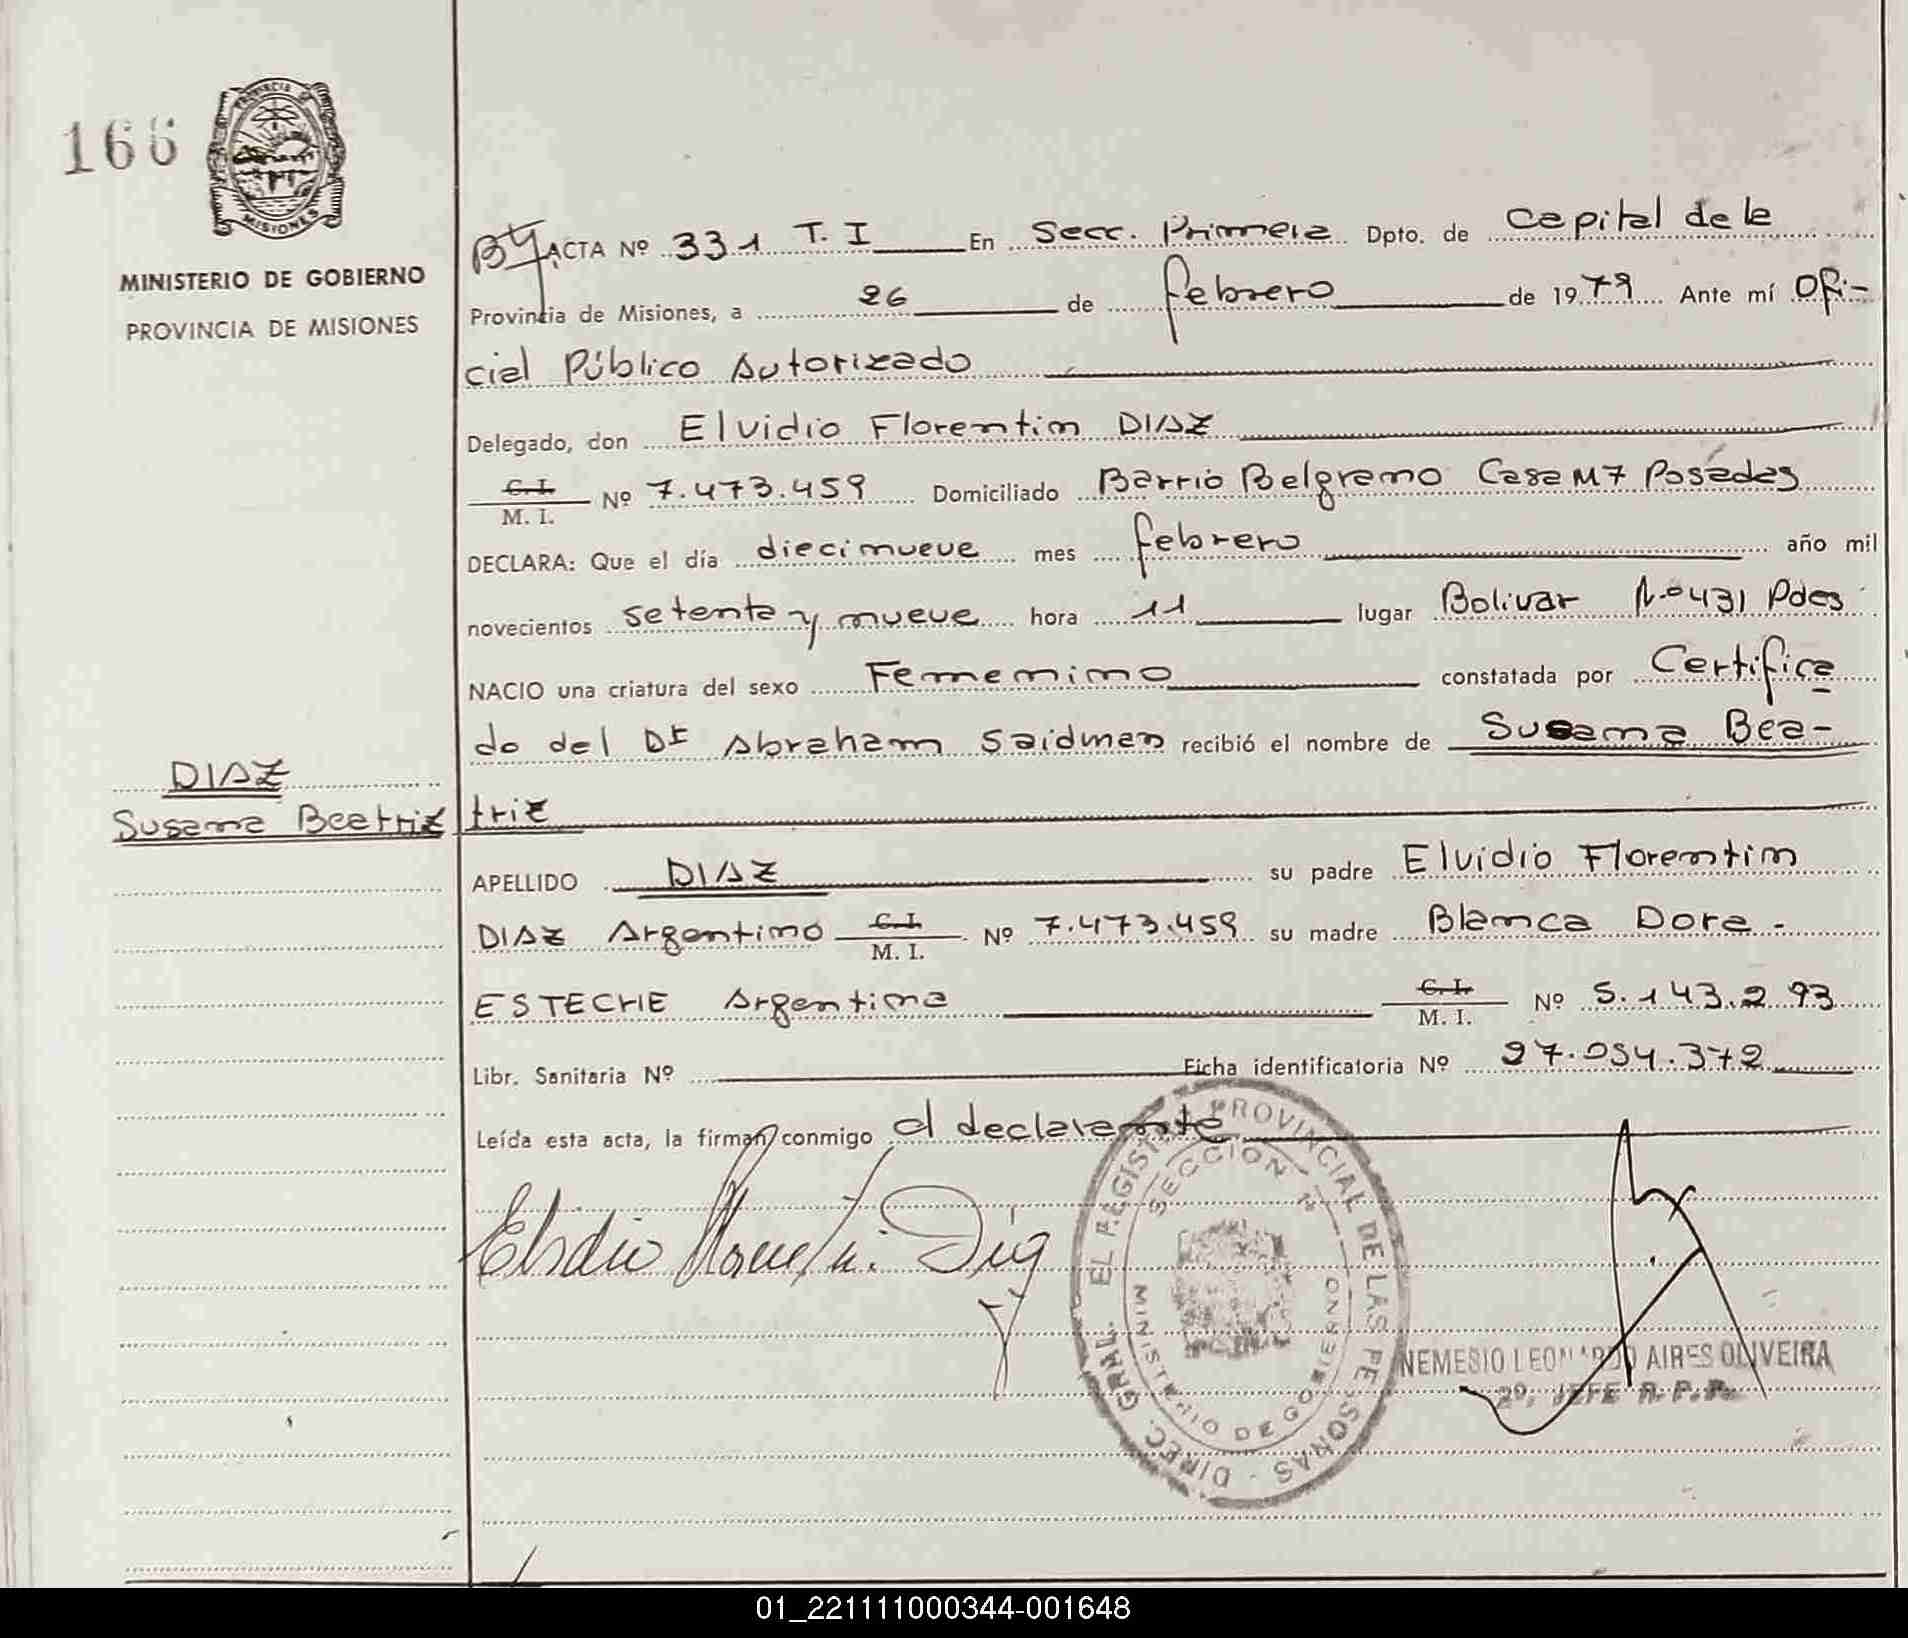 166
PROVINCIA DE
MISIONES
MINISTERIO DE GOBIERNO
PROVINCIA DE MISIONES
ACTA Nº 331 T. I En Secc. Primera Dpto. de Capital de la
Provincia de Misiones, a 26 de febrero de 1979 Ante mí Ofi-
cial Público Autorizado
Delegado, don Elvidio Florentin DIAZ
C. I. / M. I. Nº 7.473.459 Domiciliado Barrio Belgrano Casa M7 Posadas
DECLARA: Que el día diecinueve mes febrero año mil
novecientos setenta y nueve hora 11 lugar Bolivar Nº 431 Pdas
NACIO una criatura del sexo Femenino constatada por Certifica
do del Dr Abraham Saidman recibió el nombre de Susana Bea-
triz
DIAZ
Susana Beatriz
APELLIDO DIAZ su padre Elvidio Florentin
DIAZ Argentino C. I. / M. I. Nº 7.473.459 su madre Blanca Dora -
ESTECHE Argentina C. I. / M. I. Nº 5.143.293
Libr. Sanitaria Nº Ficha identificatoria Nº 27.054.372
Leída esta acta, la firman conmigo el declarante
Elvidio Florentin Diaz
DIREC. GRAL. EL REGISTRO PROVINCIAL DE LAS PERSONAS -
SECCION 1ª
MINISTERIO DE GOBIERNO
NEMESIO LEONARDO AIRES OLIVEIRA
2º. JEFE R. P. P.
01_221111000344-001648